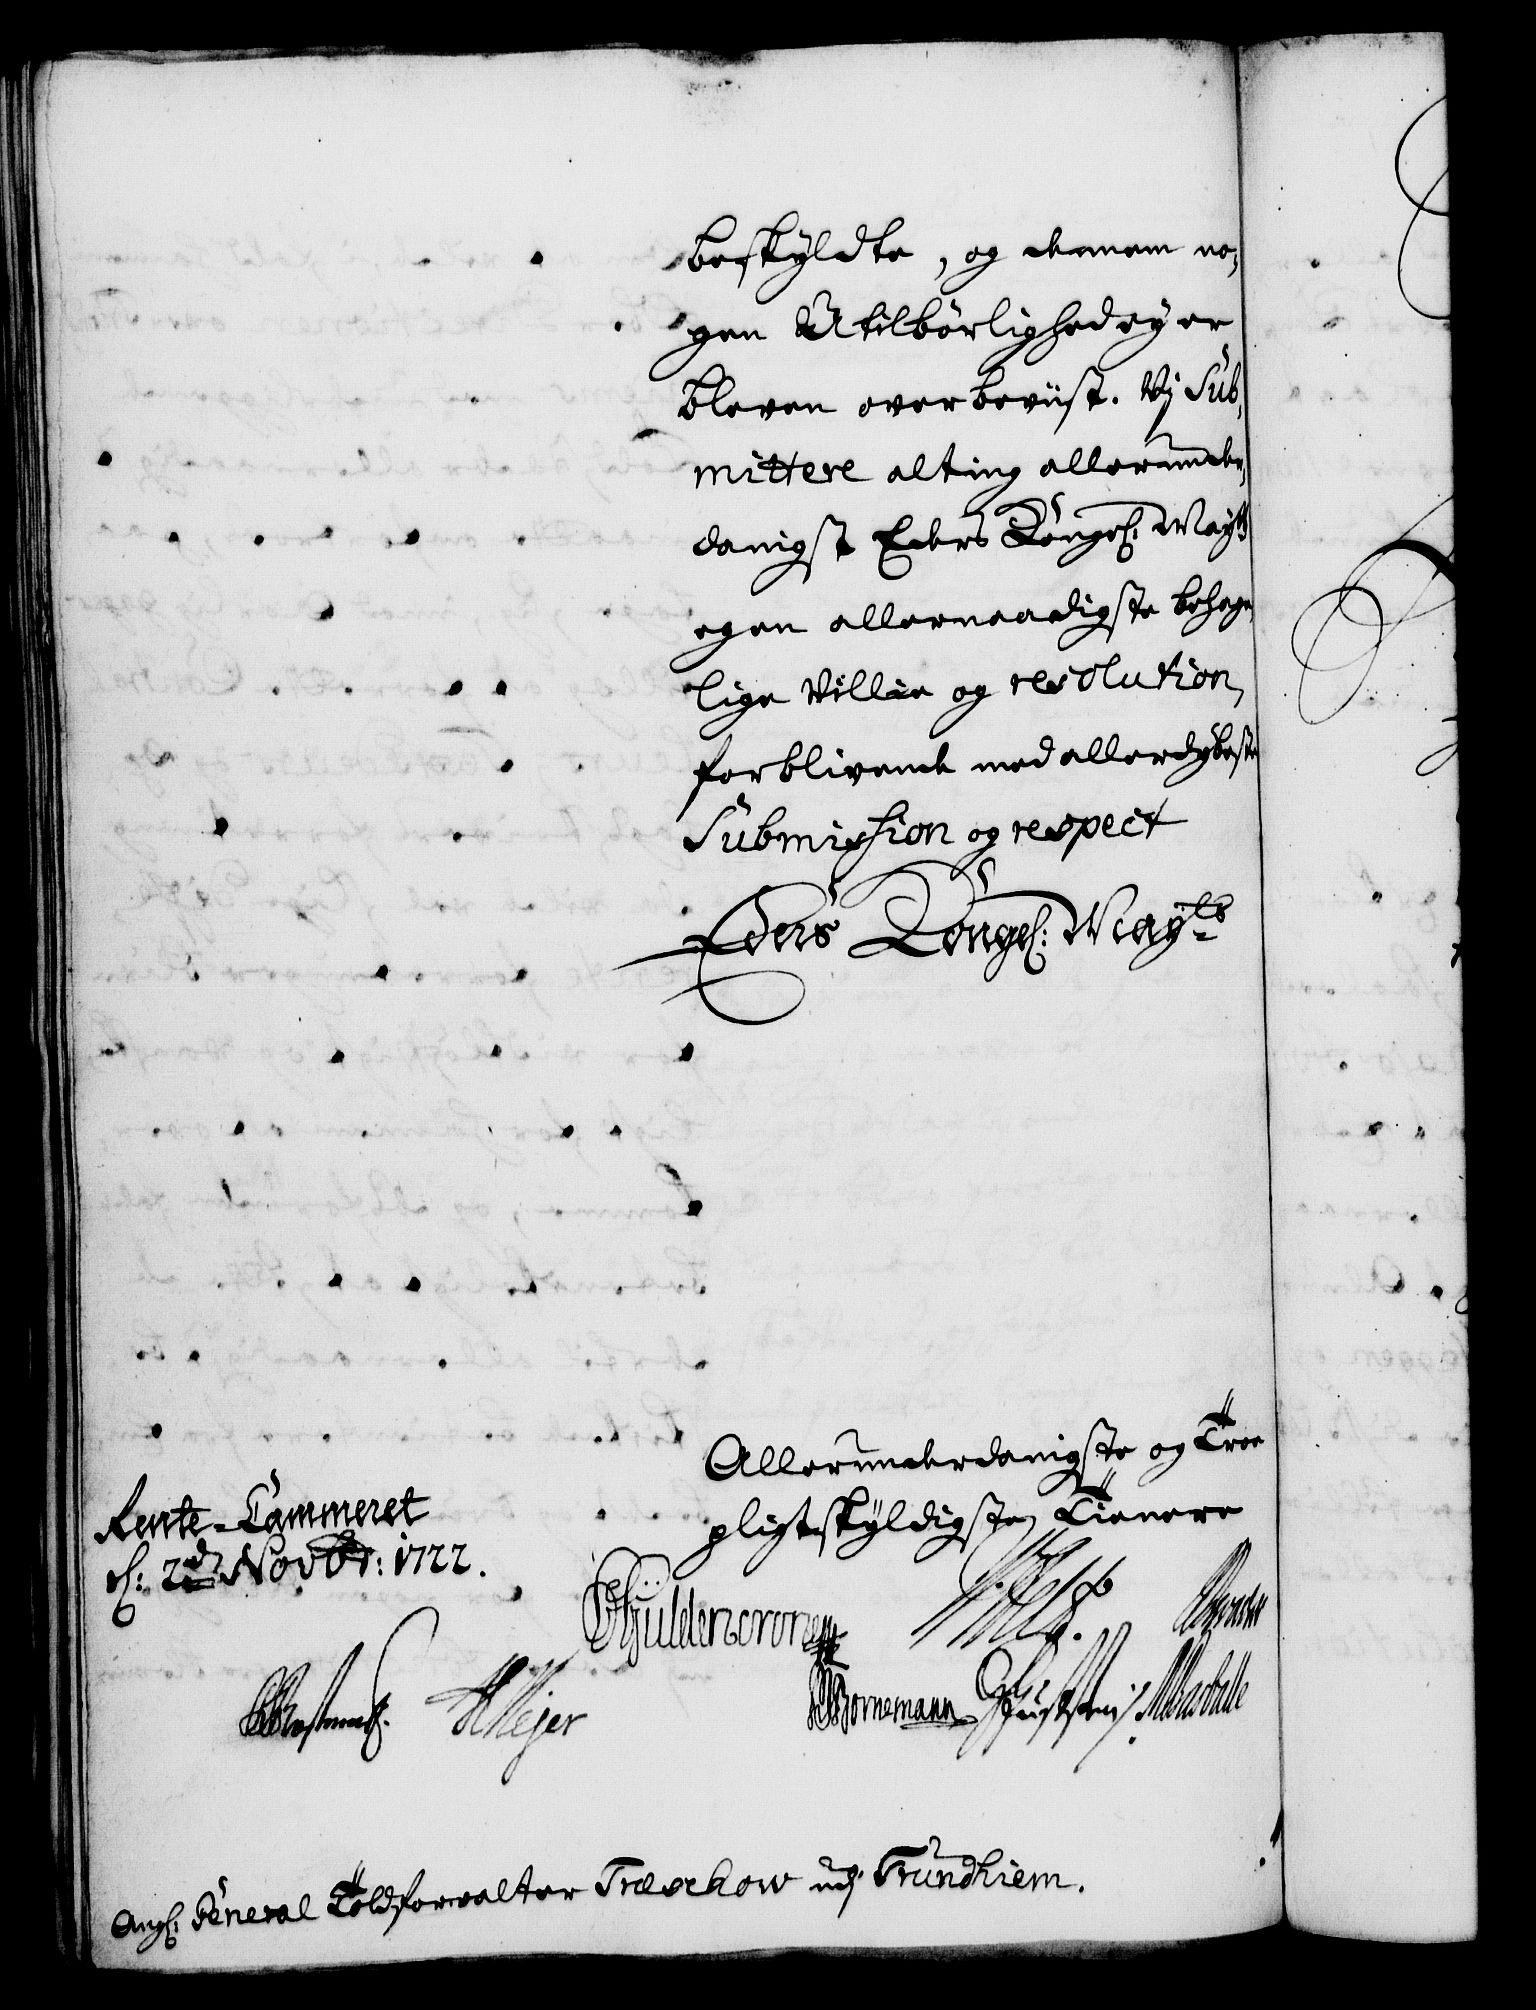 beskyldte, og dennem no,
gen Utilbörlighed ey er
bleven overbeviist. Vj Sub,
mittere alting allerunder,
danigst Eders Kongel: Mayts
egen allernaadigste behage,
lige Villie og resolution,
forblivende med allerdybeste
Submission og respect
Eders Kongel: Mayts
Allerunderdanigste og Troe
pligtskyldigste Tienere
Rente-Cammeret
d: 2den Novbr: 1722.
Güldencrone
Meyer Bornemann
Ang: General Toldforvalter Træschow udj Trundhiem.